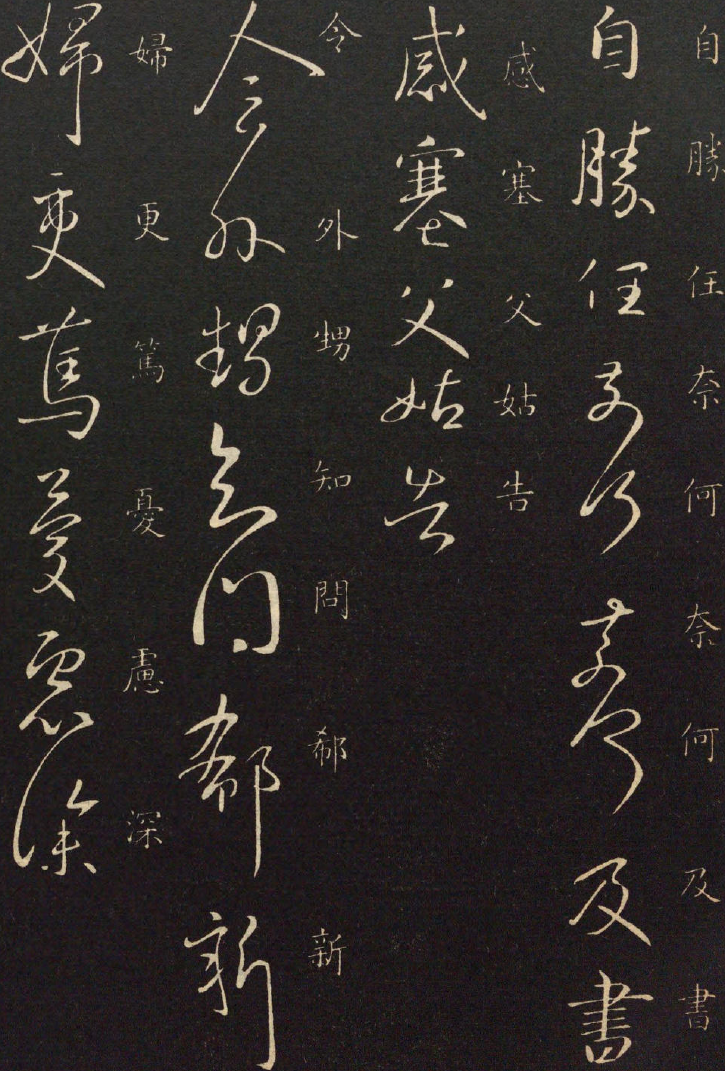 自勝任奈何奈何及書
自勝任奈何奈何及書
感塞父姑告
感塞父姑告
令外甥知問郗新
令外甥知問郗新
婦更篤憂慮深
婦更篤憂慮深